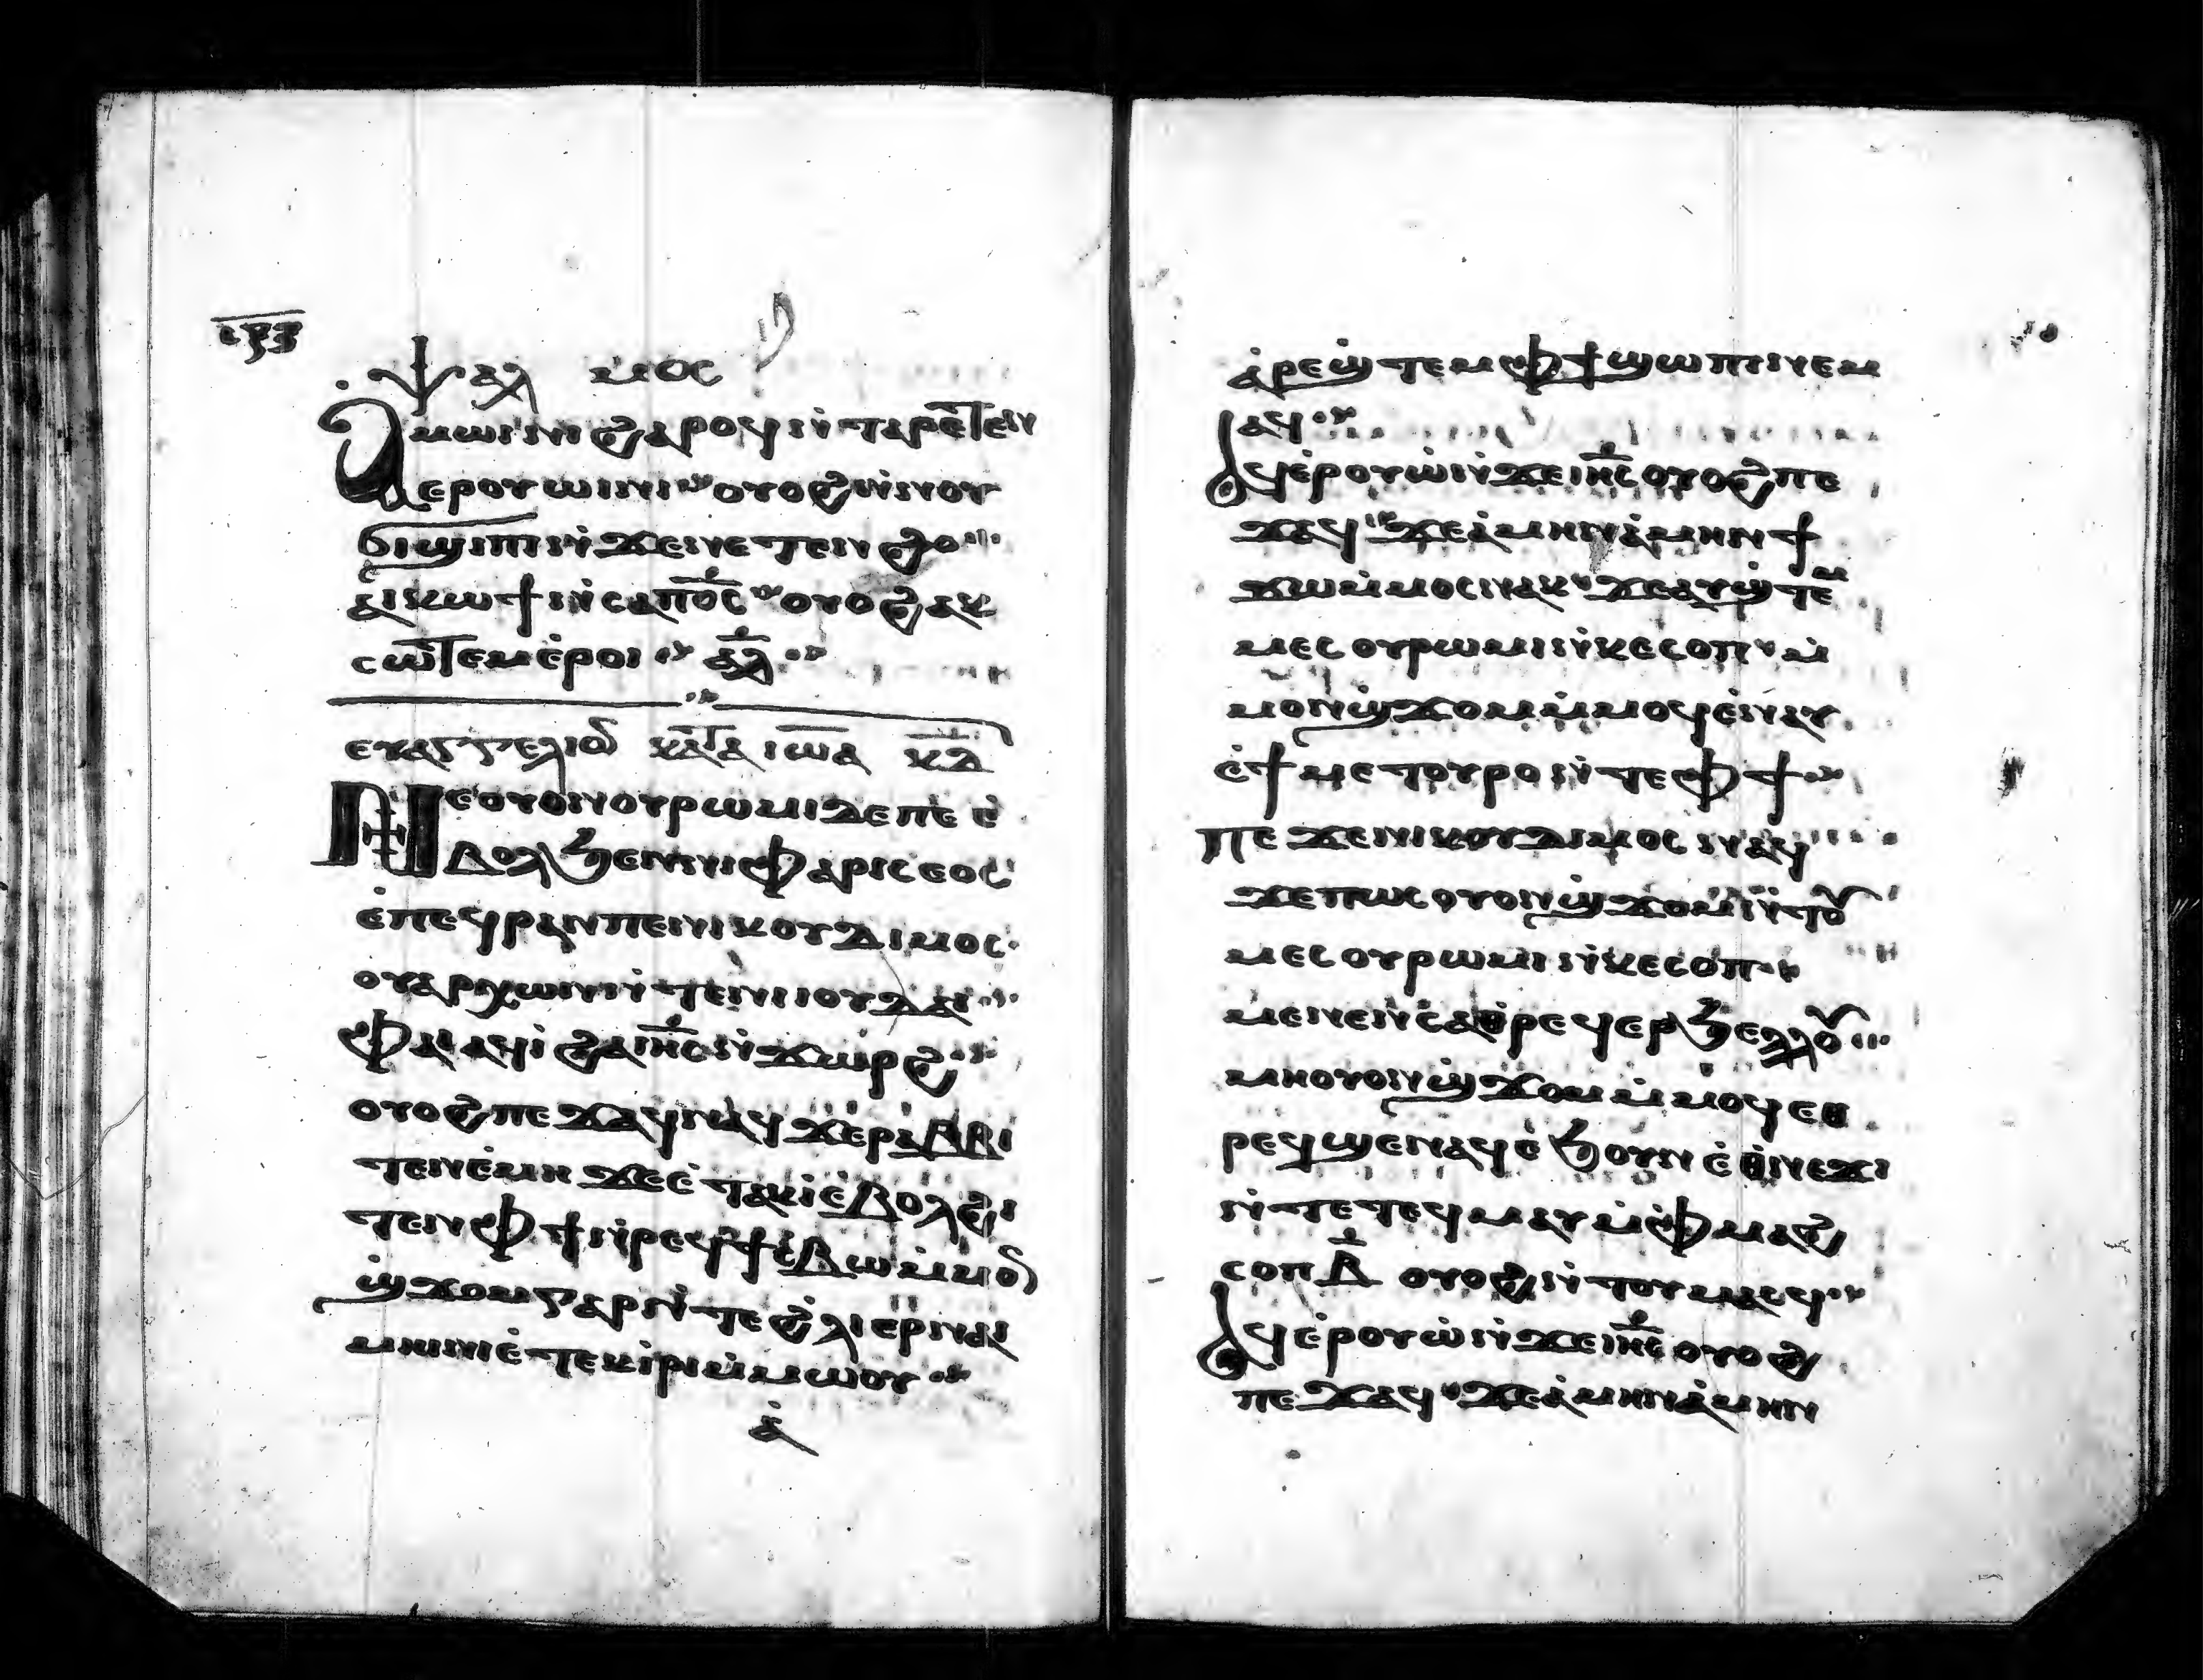 ⲥⲣⲍ
ⲯⲁⲗ ⲙⲟⲥ
Ⲁⲙⲱⲓⲛⲓ ϩⲁⲣⲟϥ ⲛ̀ⲧⲁⲣⲉⲧⲉⲛ
ⲉⲣⲟⲩⲱⲓⲛⲓ ⲟⲩⲟϩ ⲛ̀ⲛⲟⲩ
ϭⲓϣⲓⲡⲓ ⲛ̀ϫⲉ ⲛⲉⲧⲉⲛϩⲟ
ⲁⲓⲕⲱϯ ⲛ̀ⲥⲁ ⲡ̅ⲟ̅ⲥ̅ ⲟⲩⲟϩ ⲁϥ
ⲥⲱⲧⲉⲙ ⲉ̀ⲣⲟⲓ ⲁ̅ⲗ̅
ⲉⲩⲁⲅⲅⲉⲗⲓⲟⲛ ⲕⲁⲧⲁ ⲓⲱⲁ ⲕ̅ⲇ̅
Ⲛⲉ ⲟⲩⲟⲛ ⲟⲩⲣⲱⲙⲓ ⲇⲉ ⲡⲉ ⲉ̀
ⲃⲟⲗ ϧⲉⲛ ⲛⲓⲫⲁⲣⲓⲥⲉⲟⲥ
ⲉ̀ⲡⲉϥⲣⲁⲛ ⲡⲉ ⲛⲓⲕⲟⲩⲇⲓⲙⲟⲥ
ⲟⲩⲁⲣⲭⲱⲛ ⲛ̀ⲧⲉ ⲛⲓⲓⲟⲩⲇⲁⲓ
ⲫⲁⲓ ⲁϥⲓ̀ ϩⲁ ⲓ̅ⲏ̅ⲥ̅ ⲛ̀ϫⲱⲣϩ
ⲟⲩⲟϩ ⲡⲉϫⲁϥ ⲛⲁϥ ϫⲉ ⲣⲁⲃⲃⲓ
ⲧⲉⲛⲉ̀ⲙⲓ ϫⲉ ⲉ̀ⲧⲁⲕⲓ̀ ⲉⲃⲟⲗ ϩⲓ
ⲧⲉⲛ ⲫϯ ⲛ̀ⲣⲉϥϯⲥⲃⲱ ⲙ̀ⲙⲟⲛ
ϣ̀ϫⲟⲙ ⲅⲁⲣ ⲛ̀ⲧⲉ ϩⲗⲓ ⲉⲣ ⲛⲁⲓ
ⲙⲏⲓⲛⲓ ⲉ̀ⲧⲉⲕⲓ̀ⲣⲓ ⲙ̀ⲙⲱⲟⲩ
ⲁ̀
ⲁ̀ⲣⲉϣ̀ⲧⲉⲙ ⲫϯ ϣⲱⲡⲓ ⲛⲉⲙ
ⲁϥ
ⲁϥⲉ̀ⲣⲟⲩⲱ̀ ⲛ̀ϫⲉ ⲓ̅ⲏ̅ⲥ̅ ⲟⲩⲟϩ ⲡⲉ
ϫⲁϥ ϫⲉ ⲁ̀ⲙⲏⲛ ⲁ̀ⲙⲏⲛ ϯ
ϫⲱ ⲙ̀ⲙⲟⲥ ⲛⲁⲕ ϫⲉ ⲁⲩϣ̀ⲧⲉⲙ
ⲙⲉⲥ ⲟⲩⲣⲱⲙⲓ ⲛ̀ⲕⲉⲥⲟⲡ ⲙ̀
ⲙⲟⲛ ϣ̀ϫⲟⲙ ⲙ̀ⲙⲟϥ ⲉ̀ⲛⲁⲩ
ⲉ̀ϯⲙⲉⲧⲟⲩⲣⲟ ⲛ̀ⲧⲉ ⲫϯ
ⲡⲉϫⲉ ⲛⲓⲕⲟⲩⲇⲓⲙⲟⲥ ⲛⲁϥ
ϫⲉ ⲡⲱⲥ ⲟⲩⲟⲛ ϣ̀ϫⲟⲙ ⲛ̀ⲧⲟⲩ
ⲙⲉⲥ ⲟⲩⲣⲱⲙⲓ ⲛ̀ⲕⲉⲥⲟⲡ
ⲙⲉⲛⲉⲛⲥⲁ ⲑⲣⲉϥⲉⲣϧⲉⲗⲗⲟ
ⲙⲏ ⲟⲩⲟⲛ ϣ̀ϫⲟⲙ ⲙ̀ⲙⲟϥ ⲉⲑ
ⲣⲉϥϣⲉⲛⲁϥ ⲉ̀ϧⲟⲩⲛ ⲉ̀ⲑⲛⲉϫⲓ
ⲛ̀ⲧⲉ ⲧⲉϥⲙⲁⲩ ⲙ̀ⲫⲙⲁϩ
ⲥⲟⲡ ⲃ̅ ⲟⲩⲟϩ ⲛ̀ⲧⲟⲩⲙⲁⲥϥ
ⲁϥⲉ̀ⲣⲟⲩⲱ̀ ⲛ̀ϫⲉ ⲓ̅ⲏ̅ⲥ̅ ⲟⲩⲟϩ
ⲡⲉϫⲁϥ ϫⲉ ⲁ̀ⲙⲏⲛ ⲁ̀ⲙⲏⲛ